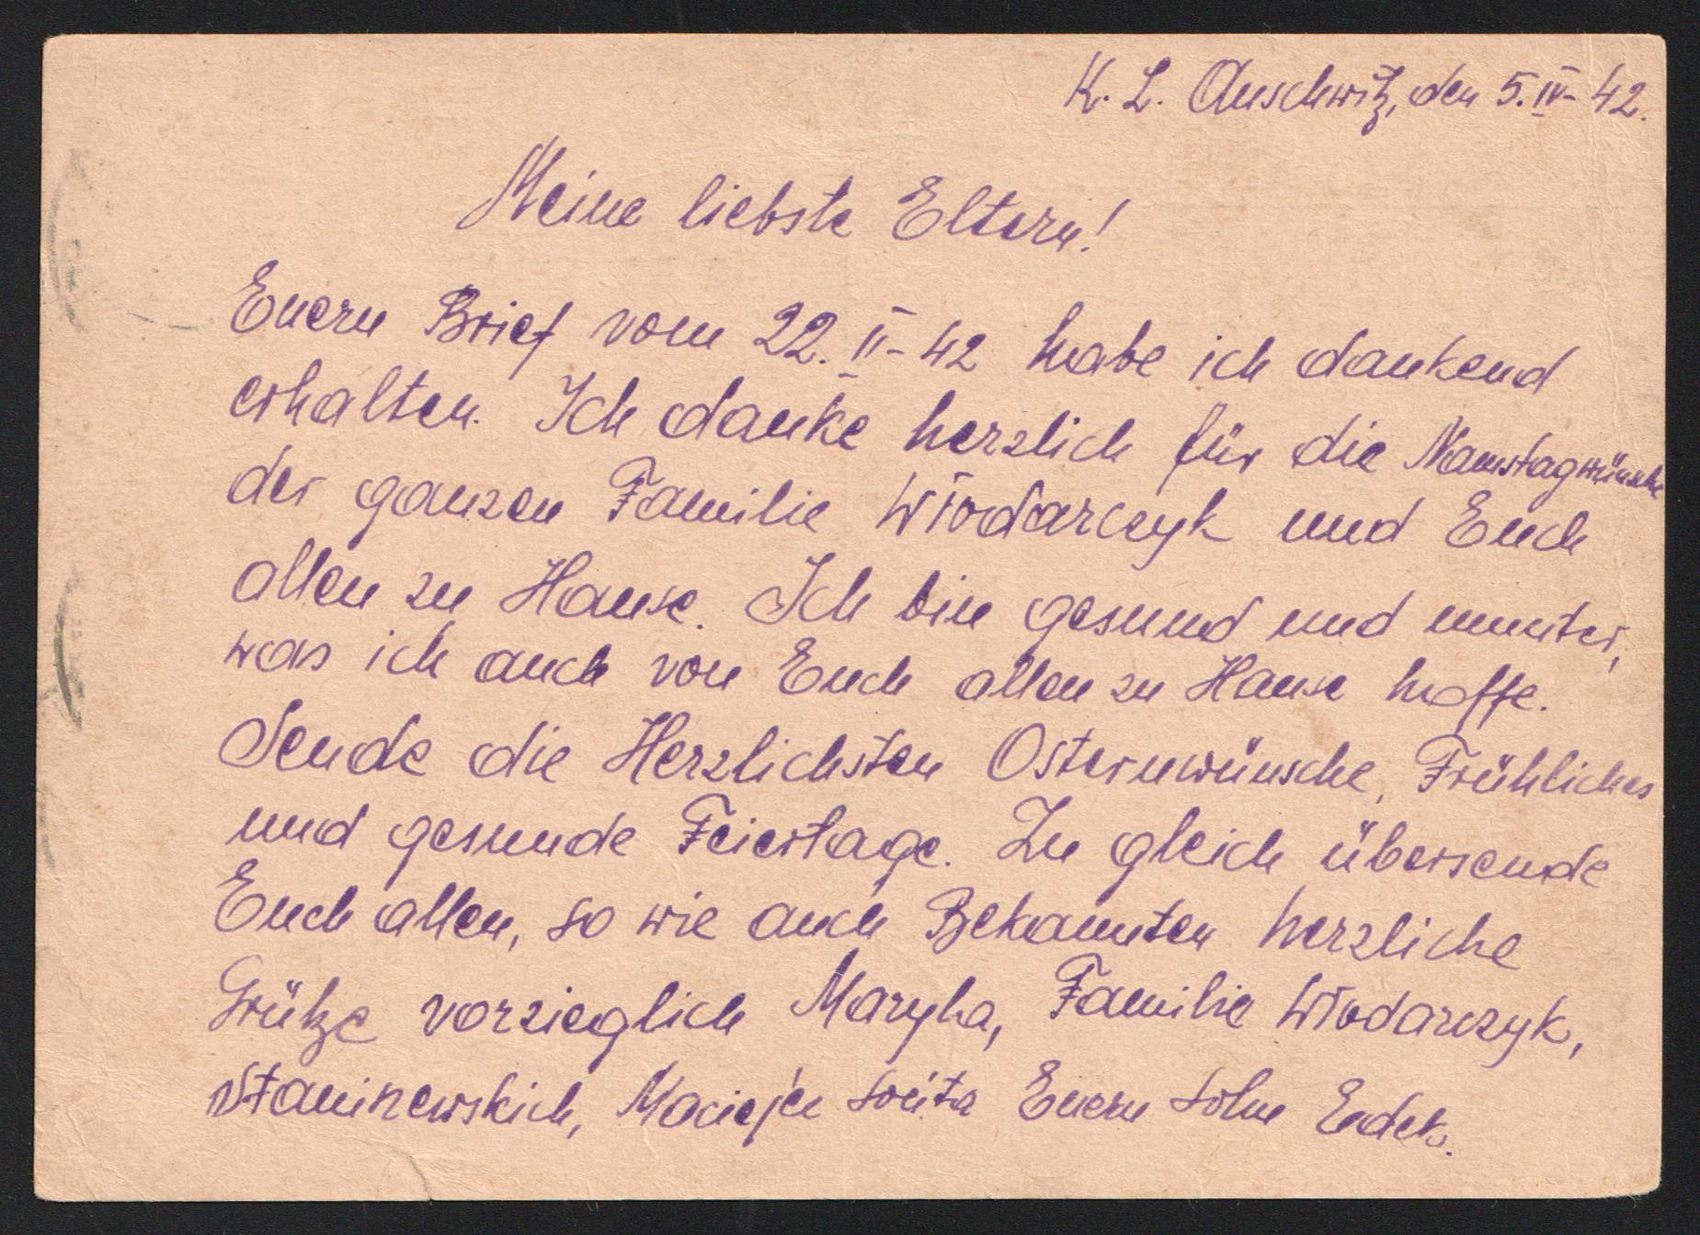 K. L. Auschwitz, den 5. IV - 42.
Meine liebste Eltern!
Euern Brief vom 22. II - 42 habe ich dankend
erhalten. Ich danke herzlich für die Namstagwünsche
der ganzen Familie Włodarczyk und Euch
allen zu Hause. Ich bin gesund und munter,
was ich auch von Euch allen zu Hause hoffe.
Sende die Herzlichsten Osternwünsche, Frühliches
und gesunde Feiertage. Zu gleich übersende
Euch allen, so wie auch Bekannten herzliche
Grütze vorzieglich Maryha, Familie Włodarczyk,
Euern Sohn Edek.